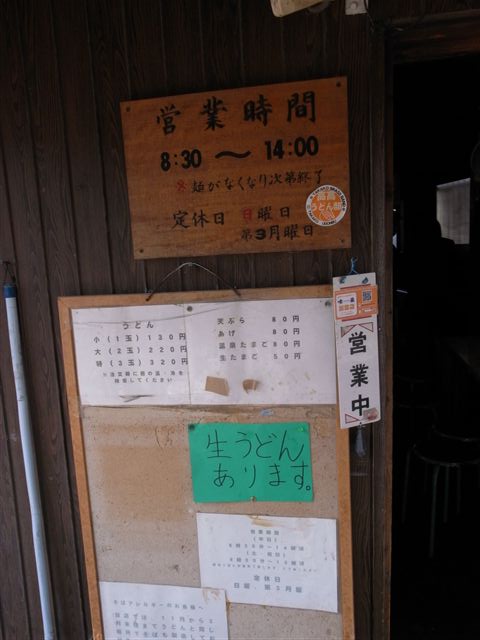 営業時間
8:30 〜 14:00
※麺がなくなり次第終了
定休日 日曜日
第3月曜日
うどん部
営業中
うどん
小(1玉)130円
大(2玉)220円
特(3玉)320円
天ぷら 80円
あげ 80円
温泉たまご 80円
生たまご 50円
生うどん
あります。
営業時間
(平日)
定休日
日曜・第3月曜
そばアレルギーのお客様へ